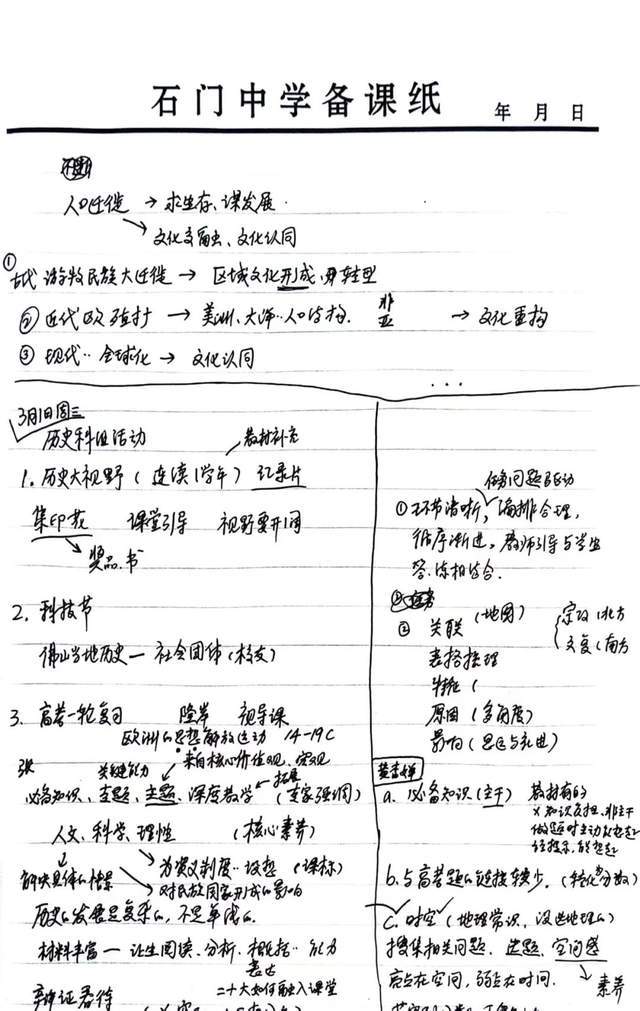 石门中学备课纸 年 月 日
人口迁徙 → 求生存、谋发展
文化交融、文化认同
① 古代 游牧民族大迁徙 → 区域文化形成、转型
② 近代 欧 殖扩 → 美洲、大洋 人口结构. 非 亚 → 文化重构
③ 现代 全球化 → 文化认同
3月1日周三
历史科组活动 教材补充
1. 历史大视野 ( 连读1学年 ) 纪录片
集印花 课堂引导 视野要开阔
奖品. 书
2. 科技节
佛山当地历史 — 社会团体 (校友)
3. 高考一轮复习 视导课
欧洲的思想解放运动 14-19C
关键能力 来自核心价值观、宏观
必备知识、主题、深度教学 ← 拓展 (专家强调)
人文、科学、理性 (核心素养)
解决具体的情景 为资义制度 设想 (课标)
对民族国家形成的影响
历史的发展是复杂的, 不是单线的.
材料丰富 — 让生阅读、分析、概括 能力
表达
辩证看待 二十大如何融入课堂
任务问题驱动
① 环节清晰, 编排合理,
循序渐进, 教师引导与学生
答、练相结合.
② 关联 (地图)
表格梳理
特征 (
原因 (多角度)
影响 (思区与礼曲)
a. 必备知识 (主干) 教材有的
b. 与高考题的链接较少. (转化为分数)
c. 时空 (地理常识、没造地理的)
搜集相关问题. 选题. 空间感
亮点在空间, 弱点在时间. 素养